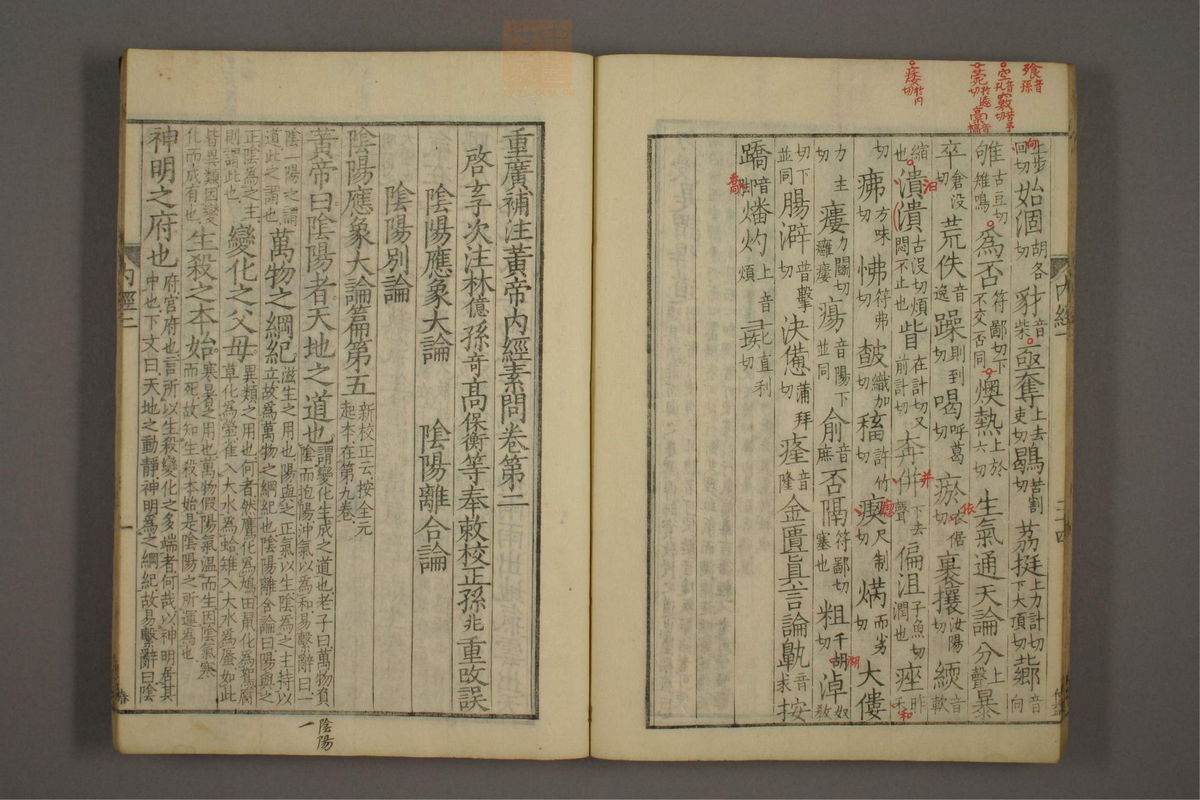 飧音孫
空音孔
上步回切 始洄胡各切 豺音柴 亟奪上去吏切 鶡苦割切 荔挺上力計切下大頂切 薌音向
雊古豆切雉鳴 為否符鄙切下不交否同 燠熱上於六切 生氣通天論 分上聲 暴
卒倉没切 荒佚音逸 躁則到切 喝呼葛切 瘀衣倨切 裏攘汝陽切 緛音軟
縮也 潰潰古没切煩悶不止也 眥在計切又前計切 奔併下去聲 偏沮子魚切潤也 痤昨和切
疿方味切 怫符弗切 皶織加切 稸許竹切 瘈尺制切 焫而劣切 大僂
力主切 瘻力鬬切瘺瘻 瘍音陽下並同 俞音庶 否隔符鄙切塞也 粗千胡切 淖奴教
切下並同 腸澼音擊切 決憊蒲拜切 癃音隆 金匱真言論 鼽音求 按
蹻音脚 燔灼上音煩
内經一
重廣補注黃帝内經素問卷第二
啓玄子次注林億孫奇高保衡等奉敕校正孫兆重改誤
陰陽應象大論 陰陽離合論
陰陽別論
陰陽應象大論篇第五 新校正云按全元起本在第九卷
黃帝曰陰陽者天地之道也 謂變化生成之道也老子曰萬物負陰而抱陽沖氣以為和易繫辭曰一
陰一陽之謂道此之謂也 萬物之綱紀 滋生之用也陽與之正氣以生陰為之主持以立故為萬物之綱紀也陰陽離合論曰陽與之
正陰為之主則謂此也 變化之父母 異類之用也何者然鷹化為鳩田鼠化為鴽腐草化為螢雀入大水為蛤雉入大水為蜃如此
皆異類因變化而成有也 生殺之本始 寒暑之用也萬物假陽氣温而生因陰氣寒而死故知生殺本始是陰陽之所運為也
神明之府也 府宮府也言所以生殺變化之多端者何哉以神明居其中也下文曰天地之動靜神明為之綱紀故易繫辭曰陰
内經二
一
陰陽
一